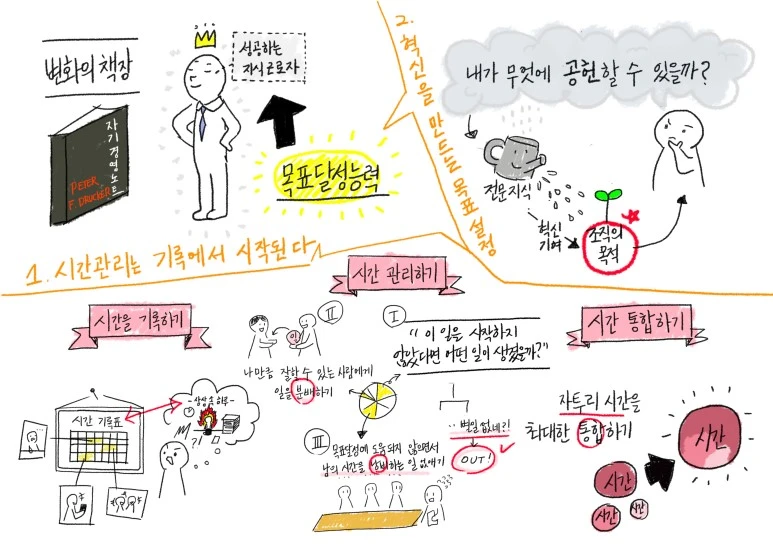 변화의 책장
자기경영노트
PETER
F. DRUCKER
성공하는
지식근로자
목표달성능력
1. 시간관리는 기록에서 시작된다
2. 혁신을 만드는 목표 설정
내가 무엇에 공헌할 수 있을까?
전문지식
혁신
기여
조직의
목적
시간 관리하기
시간을 기록하기
시간 기록표
- 상상 속 하루 -
?!
I
"이 일을 시작하지
않았다면 어떤 일이 생겼을까?"
별일 없네?!
OUT!
II
일
나만큼 잘할 수 있는 사람에게
일을 분배하기
III
목표달성에 도움되지 않으면서
남의 시간을 낭비하는 일 없애기
???
시간 통합하기
자투리 시간을
최대한 통합하기
시간
시간
시간
시간